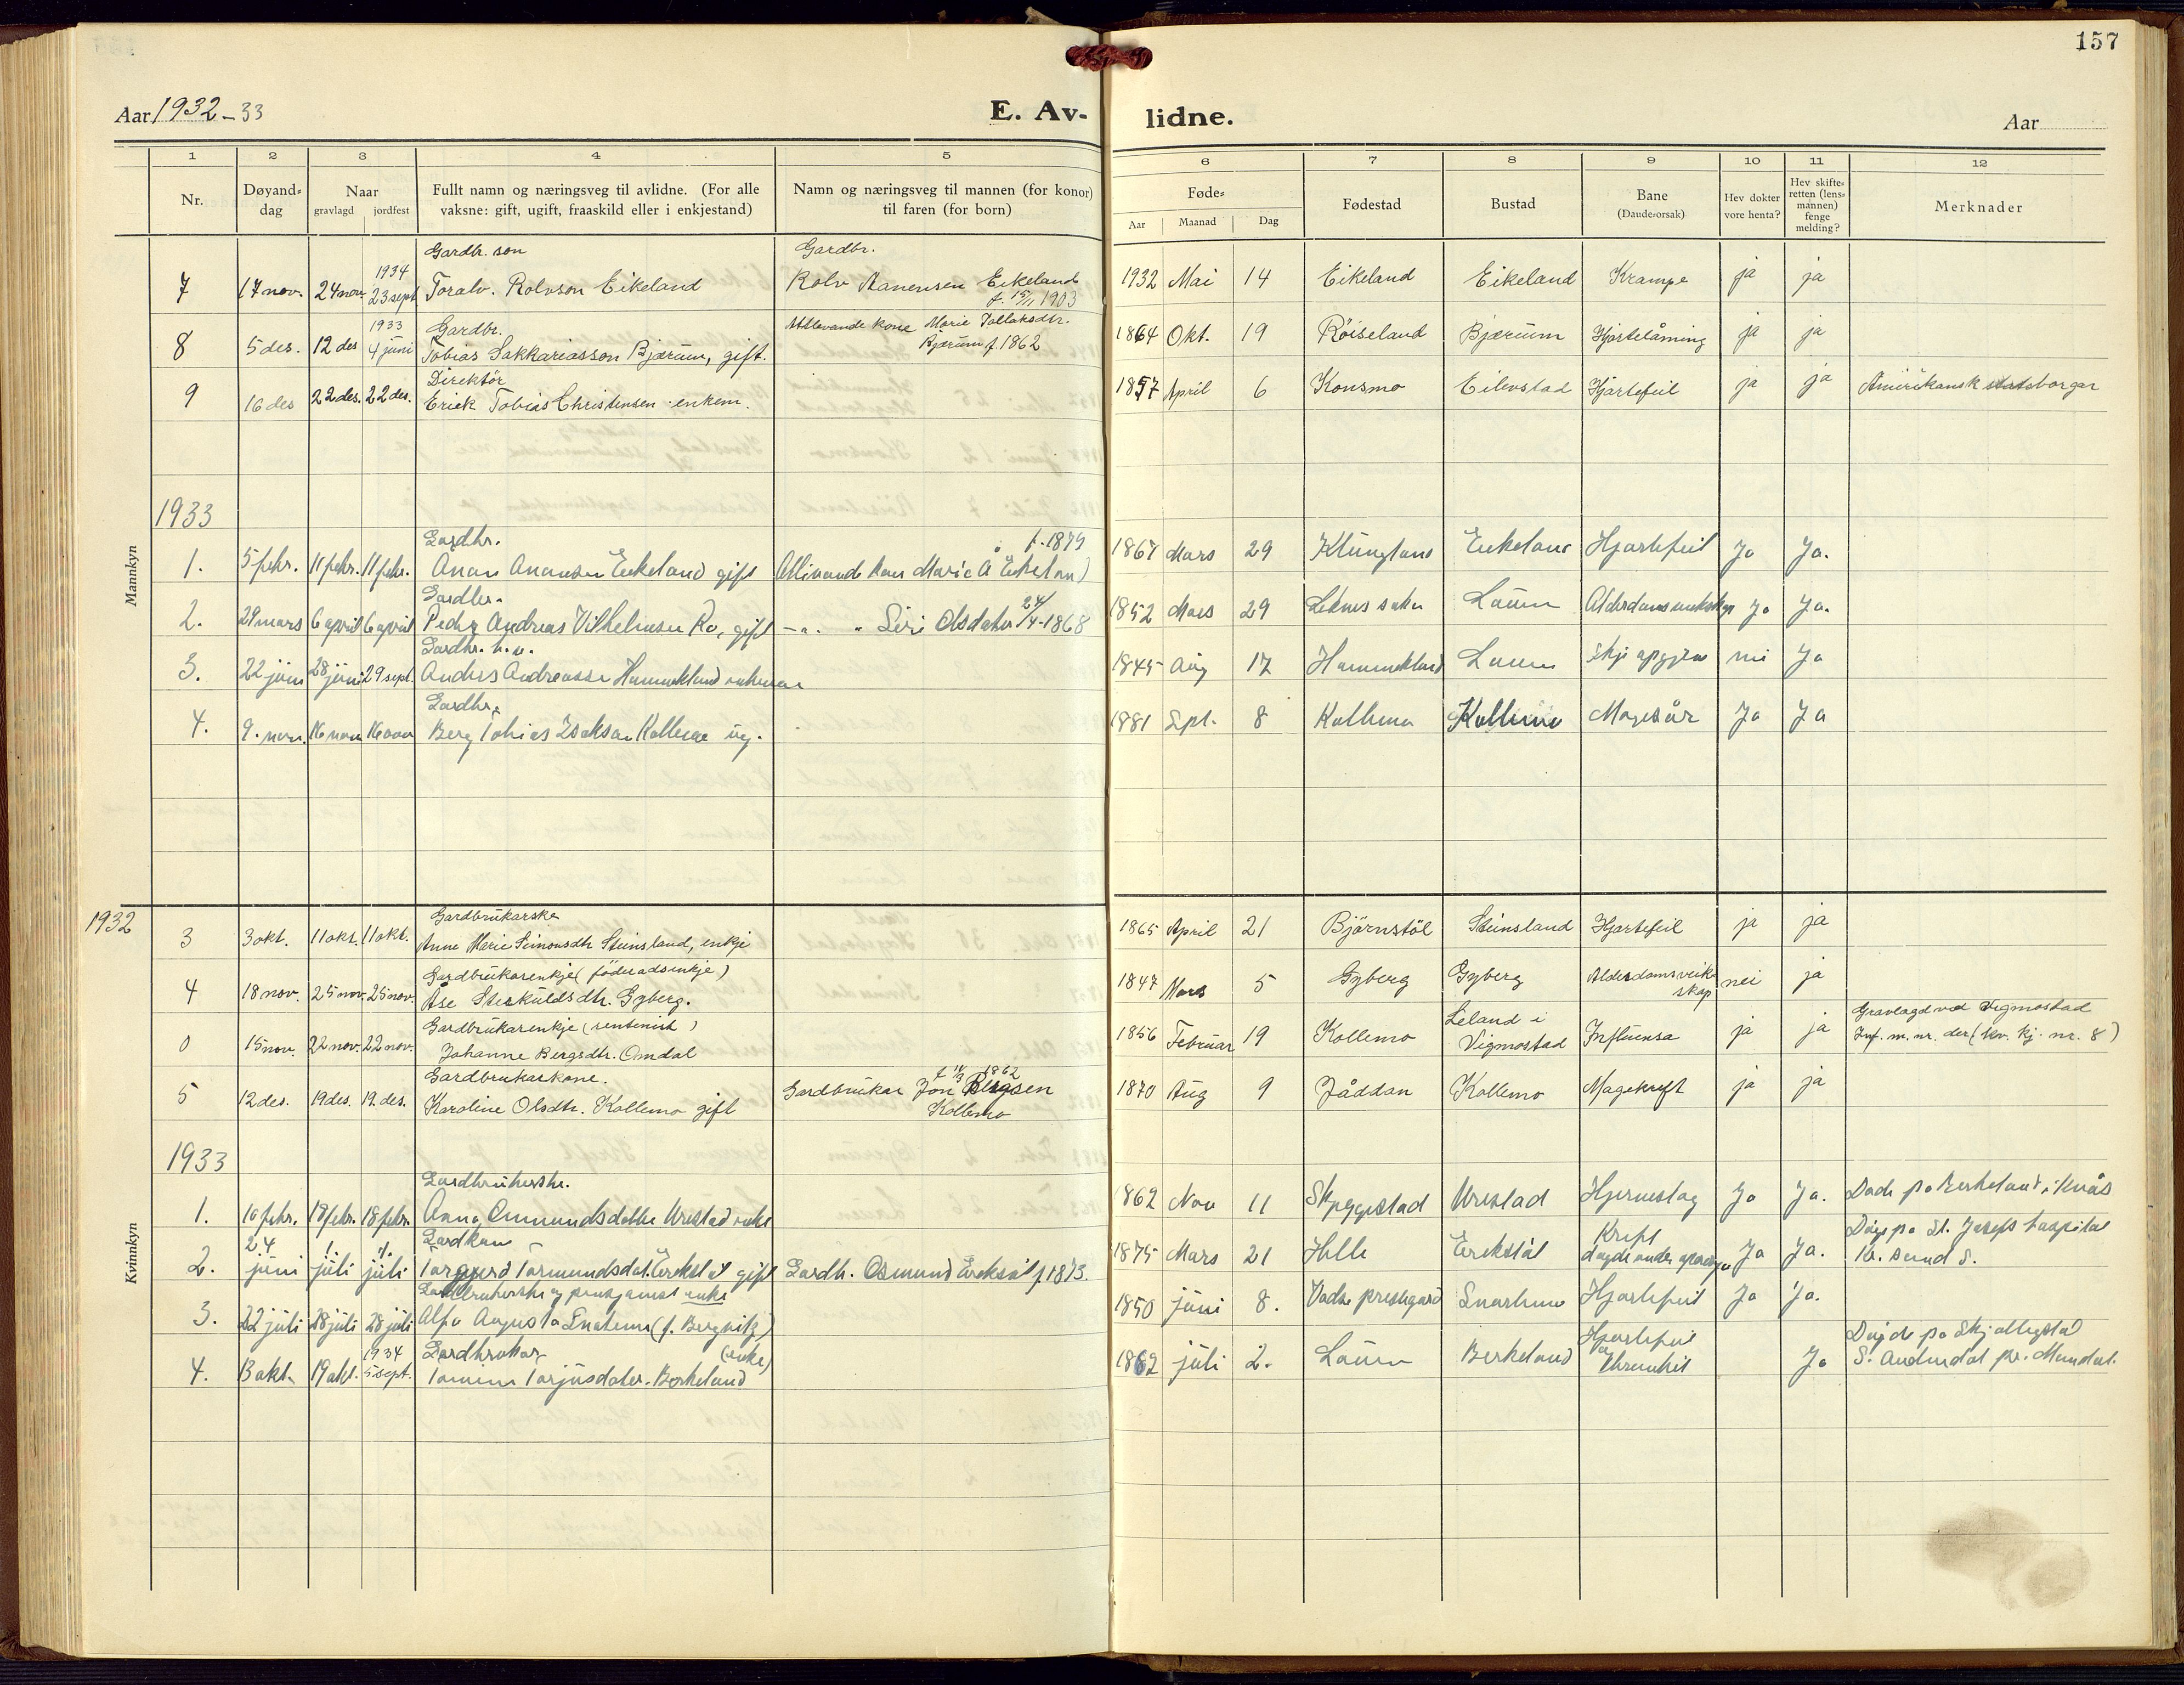 157
Aar 1932-33 E. Av- lidne. Aar
1 2 3 4 5 6 7 8 9 10 11 12
Nr. Døyand-dag Naar gravlagd jordfest Fullt namn og næringsveg til avlidne. (For alle vaksne: gift, ugift, fraaskild eller i enkjestand) Namn og næringsveg til mannen (for konor) til faren (for born) Føde- Aar Maanad Dag Fødestad Bustad Bane (Daude-orsak) Hev dokter vore henta? Hev skifte-retten (lens-mannen) fenge melding? Merknader
Mannkyn
Gardbr. son Gardbr.
7 17 nov. 24 nov. 1934 23 sept Toralv. Rolvson Eikeland Rolv Aanensen Eikeland f. 15/11 1903 1932 Mai 14 Eikeland Eikeland Krampe ja ja
Gardbr. Attlevande kone Marie Tallaksdtr.
8 5 des. 12 des 1933 4 juni Tobias Sakkariasson Bjærum, gift. Bjærum f. 1862 1864 Okt. 19 Röiseland Bjærum Hjartelåming ja ja
Direktör
9 16 des 22 des. 22 des. Erick Tobias Christensen enkem. 1857 April 6 Konsmo Eilevstad Hjartefeil ja ja Amerikansk statsborgar
1933
Gardbr. f. 1879
1. 5 febr. 11 febr. 11 febr. Anan Anansen Eikeland gift Marie A Eikeland 1867 Mars 29 Klungland Eikeland Hjartefeil Ja Ja.
Gardbr. 24/4-1868
2. 29 mars 6 april 6 april Peder Andreas Vilhelmsen Ro, gift - " - " Siri Olsdater 1852 Mars 29 Laum Ja Ja.
Gardbr.
3. 22 juni 28 juni 29 sept. Anders Andreassen Hummekland 1845 Aug 17 Hummekland Laum nei Ja
Gardbr.
4. 9. nov. 16 nov 16 nov Berg Tobias Isaksen Kollemo ug. 1881 Spt. 8 Kollemo Kollemo Magesår Ja Ja
Kvinnkyn
1932
Gardbrukarske
3 3 okt. 11 okt. 11 okt. Anne Marie Simonsdtr Steinsland, enkje 1865 April 21 Björnstöl Steinsland Hjartefeil ja ja
Gardbrukarenkje (föderadsenkje)
4 18 nov. 25 nov. 25 nov. Åse Sterkuldsdtr. Gyberg. 1847 Mars 5 Gyberg Gyberg Alderdomsveikskap nei ja
Gardbrukarenkje (rentenist)
0 15 nov. 22 nov. 22 nov. Johanne Bergsdtr. Omdal 1856 Februar 19 Kollemo Leland i Vigmostad Influensa ja ja Gravlagd ved Vigmostad Inf. m. nr. der (kv. kj. nr. 8)
Gardbrukarkone. 1862
5 12 des. 19 des. 19. des. Karoline Olsdtr. Kollemo gift Gardbrukar Jon Bergsen Kollemo 1870 Aug 9 Jåddan Kollemo Magekreft ja ja
1933
1. 10 febr. 18 febr. 18 febr. Anna Ommundsdatter Urestad enke 1862 Nov 11 Skjeggestad Urestad Hjerneslag Ja Ja.
Gardkone
2. 24 juni 1. juli 1. juli Torgjerd Tormundsdat. Erikstøl gift Gardb. Osmund Eriksøl f. 1873. 1875 Mars 21 Helle Erikstøl Kreft Ja Ja. St. Josefs hospital Kr. sand S.
3. 22 juli 28 juli 28 juli Alfa Augusta Snartemo (f. Bergwitz) 1850 juni 8. Vadse prestegard Snartemo Hjartefeil Ja Ja.
Gardbrukar (enke)
4. 13 okt. 19 okt. 1934 5 sept. Tarjusdater. Berkeland 1862 juli 2. Laum Berkeland Hjartefeil Ja S. Audnedal pr. Mandal.